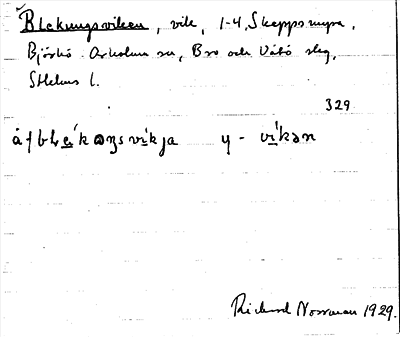 Blekungsviken, vik, 1-4, Skeppsmyra,
Björkö-Arholma sn, Bro och Vätö slg,
Sthlms l.
329
y - vi̱kən
Richard Norrman 1929.